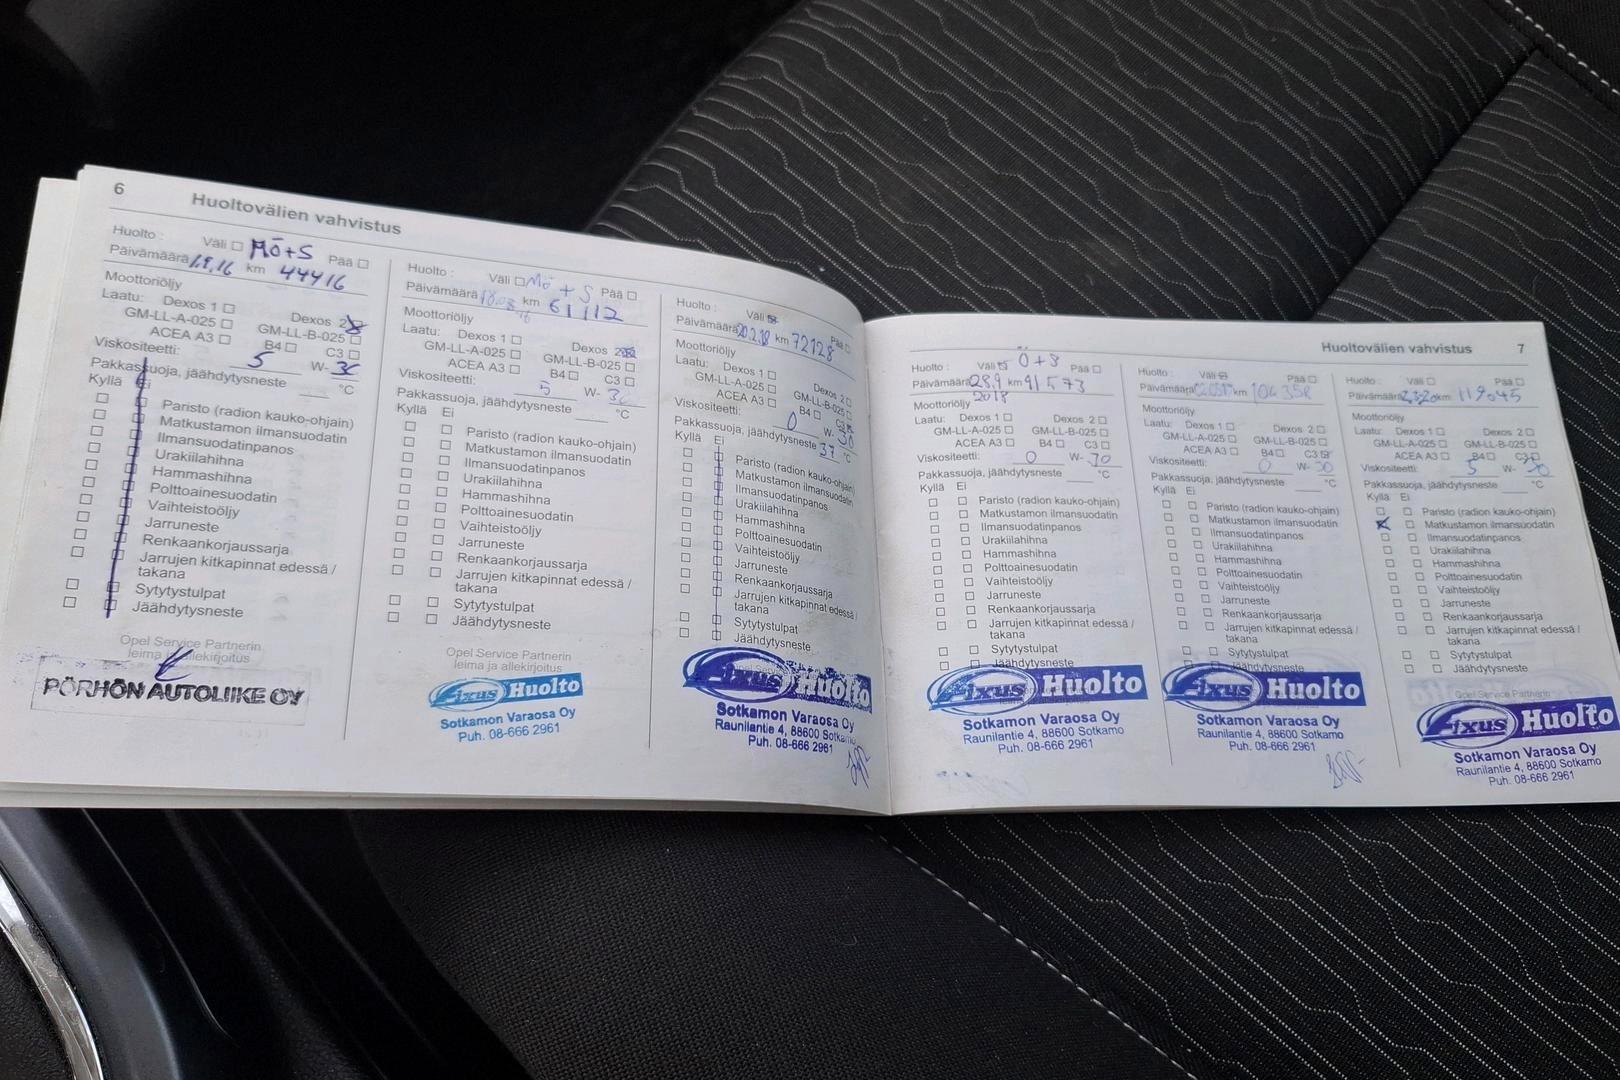 6 Huoltovälien vahvistus
Huolto : Väli Mö+S Pää
Päivämäärä 1.9.16 km 44416
Moottoriöljy
Laatu: Dexos 1 Dexos 2
GM-LL-A-025 GM-LL-B-025
ACEA A3 B4 C3
Viskositeetti: 5 W- 30
Pakkassuoja, jäähdytysneste °C
Kyllä Ei
Paristo (radion kauko-ohjain)
Matkustamon ilmansuodatin
Ilmansuodatinpanos
Urakiilahihna
Hammashihna
Polttoainesuodatin
Vaihteistoöljy
Jarruneste
Renkaankorjaussarja
Jarrujen kitkapinnat edessä /
takana
Sytytystulpat
Jäähdytysneste
Opel Service Partnerin
leima ja allekirjoitus
PÖRHÖN AUTOLIIKE OY
Huolto : Väli Mö + S Pää
Päivämäärä km 61112
Moottoriöljy
Laatu: Dexos 1 Dexos 2
GM-LL-A-025 GM-LL-B-025
ACEA A3 B4 C3
Viskositeetti: 5 W- 30
Pakkassuoja, jäähdytysneste °C
Kyllä Ei
Paristo (radion kauko-ohjain)
Matkustamon ilmansuodatin
Ilmansuodatinpanos
Urakiilahihna
Hammashihna
Polttoainesuodatin
Vaihteistoöljy
Jarruneste
Renkaankorjaussarja
Jarrujen kitkapinnat edessä /
takana
Sytytystulpat
Jäähdytysneste
Opel Service Partnerin
leima ja allekirjoitus
Fixus Huolto
Sotkamon Varaosa Oy
Puh. 08-666 2961
Huolto : Väli Pää
Päivämäärä 20.2.18 km 72128
Moottoriöljy
Laatu: Dexos 1 Dexos 2
GM-LL-A-025 GM-LL-B-025
ACEA A3 B4 C3
Viskositeetti: 0 W- 30
Pakkassuoja, jäähdytysneste 37 °C
Kyllä Ei
Paristo (radion kauko-ohjain)
Matkustamon ilmansuodatin
Ilmansuodatinpanos
Urakiilahihna
Hammashihna
Polttoainesuodatin
Vaihteistoöljy
Jarruneste
Renkaankorjaussarja
Jarrujen kitkapinnat edessä /
takana
Sytytystulpat
Jäähdytysneste
Fixus Huolto
Sotkamon Varaosa Oy
Raunilantie 4, 88600 Sotkamo
Puh. 08-666 2961
Huoltovälien vahvistus 7
Huolto : Väli Ö+S Pää
Päivämäärä 28.9 km 91573
2018
Moottoriöljy
Laatu: Dexos 1 Dexos 2
GM-LL-A-025 GM-LL-B-025
ACEA A3 B4 C3
Viskositeetti: 0 W- 30
Pakkassuoja, jäähdytysneste °C
Kyllä Ei
Paristo (radion kauko-ohjain)
Matkustamon ilmansuodatin
Ilmansuodatinpanos
Urakiilahihna
Hammashihna
Polttoainesuodatin
Vaihteistoöljy
Jarruneste
Renkaankorjaussarja
Jarrujen kitkapinnat edessä /
takana
Sytytystulpat
Jäähdytysneste
Fixus Huolto
Sotkamon Varaosa Oy
Raunilantie 4, 88600 Sotkamo
Puh. 08-666 2961
Huolto : Väli Pää
Päivämäärä km 104358
Moottoriöljy
Laatu: Dexos 1 Dexos 2
GM-LL-A-025 GM-LL-B-025
ACEA A3 B4 C3
Viskositeetti: 0 W- 30
Pakkassuoja, jäähdytysneste °C
Kyllä Ei
Paristo (radion kauko-ohjain)
Matkustamon ilmansuodatin
Ilmansuodatinpanos
Urakiilahihna
Hammashihna
Polttoainesuodatin
Vaihteistoöljy
Jarruneste
Renkaankorjaussarja
Jarrujen kitkapinnat edessä /
takana
Sytytystulpat
Jäähdytysneste
Fixus Huolto
Sotkamon Varaosa Oy
Raunilantie 4, 88600 Sotkamo
Puh. 08-666 2961
Huolto : Väli Pää
Päivämäärä km 119045
Moottoriöljy
Laatu: Dexos 1 Dexos 2
GM-LL-A-025 GM-LL-B-025
ACEA A3 B4 C3
Viskositeetti: 5 W- 30
Pakkassuoja, jäähdytysneste °C
Kyllä Ei
Paristo (radion kauko-ohjain)
Matkustamon ilmansuodatin
Ilmansuodatinpanos
Urakiilahihna
Hammashihna
Polttoainesuodatin
Vaihteistoöljy
Jarruneste
Renkaankorjaussarja
Jarrujen kitkapinnat edessä /
takana
Sytytystulpat
Jäähdytysneste
Opel Service Partnerin
Fixus Huolto
Sotkamon Varaosa Oy
Raunilantie 4, 88600 Sotkamo
Puh. 08-666 2961